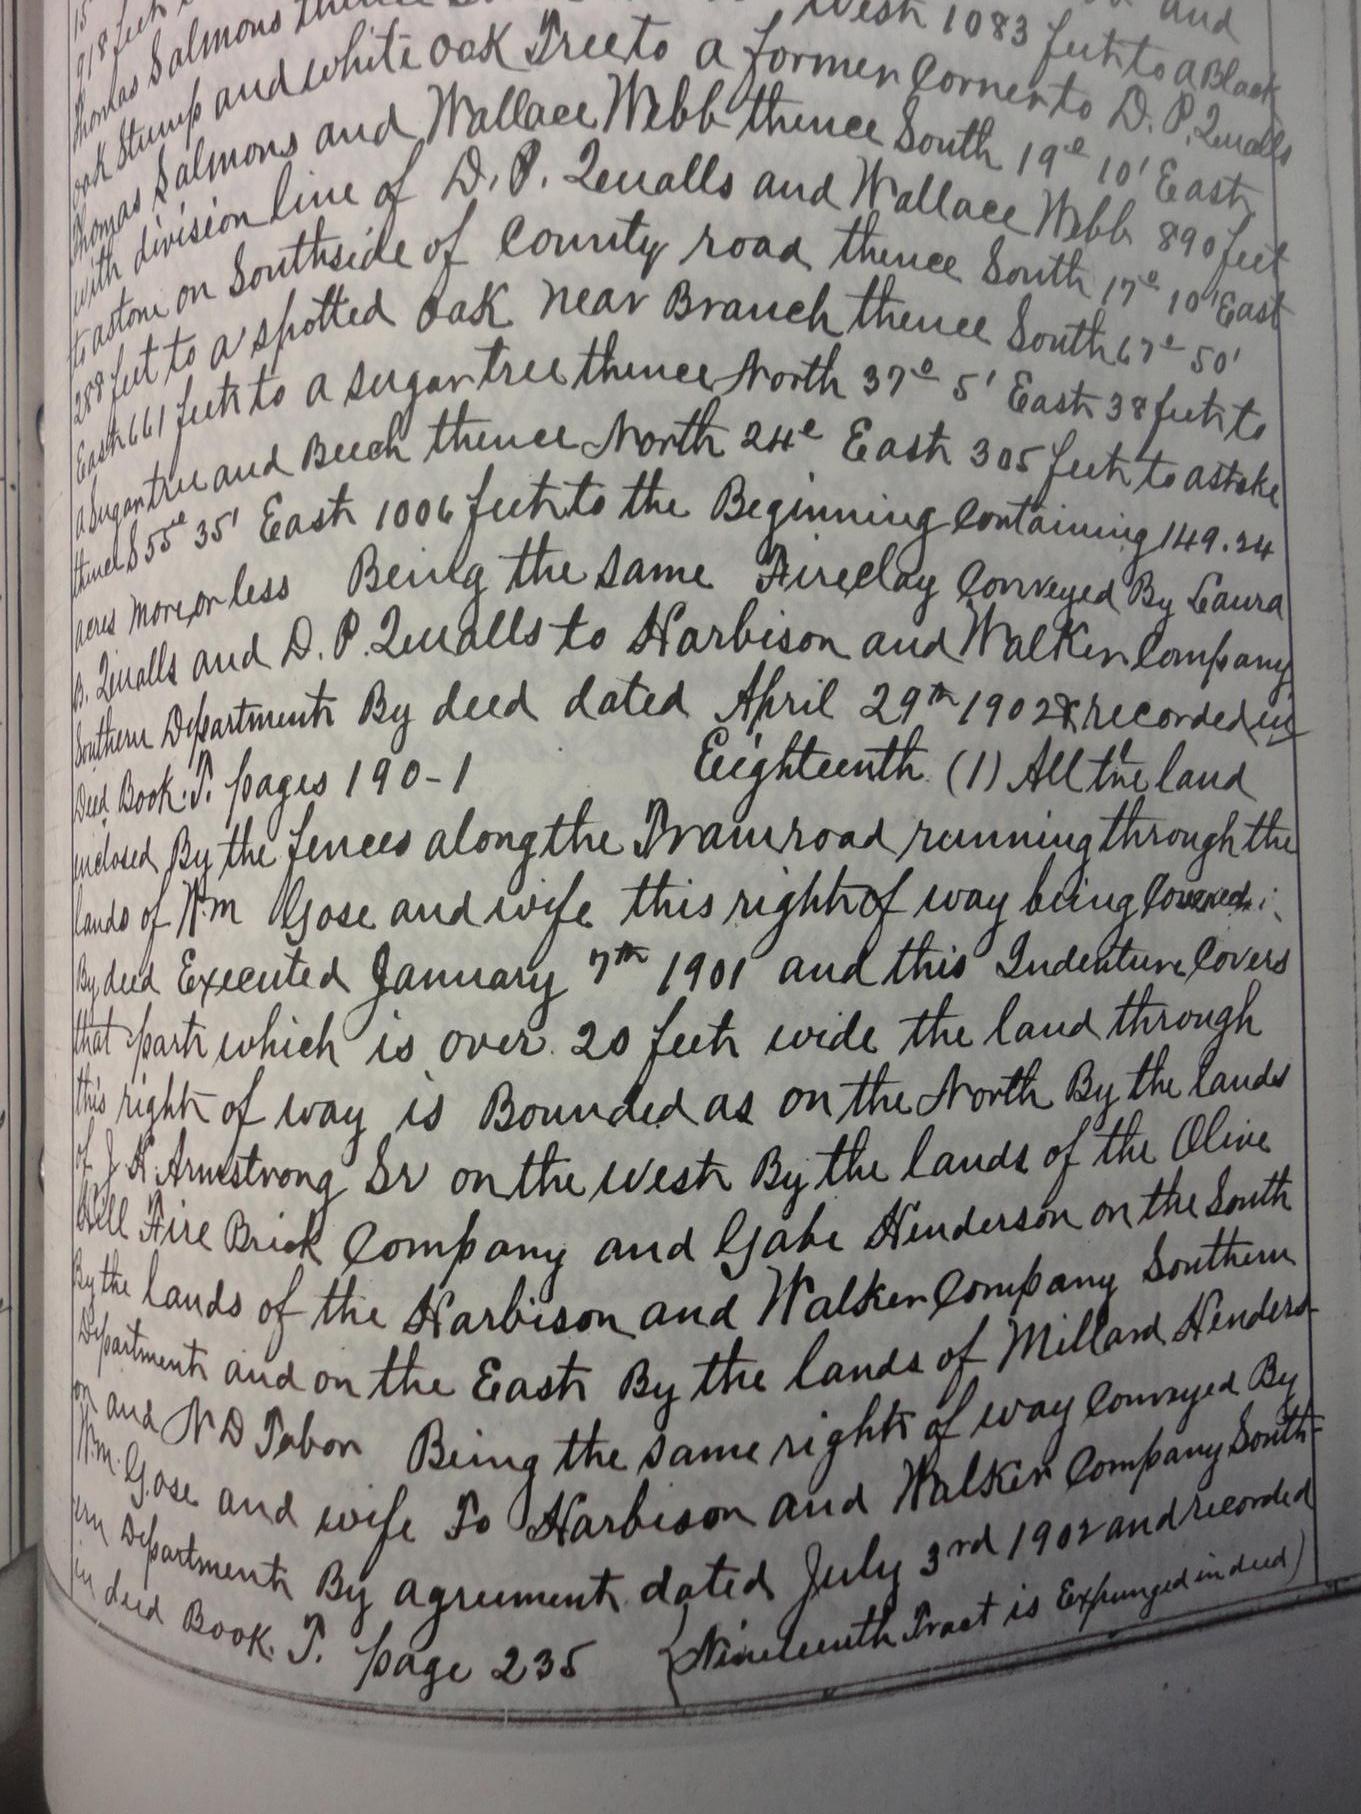 and
918 feet West 1083 feet to a Black
Thomas Salmons thence
oak Stump and white oak Tree to a former Corner to D. P. Qualls
Thomas Salmons and Wallace Webb thence South 19° 10' East
with division line of D. P. Qualls and Wallace Webb 890 feet
to a stone on Southside of County road thence South 17° 10' East
288 feet to a spotted oak near Branch thence South 67° 50'
East 661 feet to a sugar tree thence North 37° 5' East 38 feet to
a Sugar tree and Beech thence North 24° East 305 feet to a stake
thence S 55° 35' East 1006 feet to the Beginning Containing 149.24
acres more or less Being the same Fireclay Conveyed By Laura
B. Qualls and D. P. Qualls to Harbison and Walker Company
Southern Department By deed dated April 29th 1902 & recorded in
Deed Book T. pages 190-1 Eighteenth (1) All the land
enclosed By the fences along the Tramroad running through the
lands of Wm Gose and wife this right of way being
By deed Executed January 7th 1901 and this Indenture Covers
that part which is over 20 feet wide the land through
this right of way is Bounded as on the North By the lands
of J H. Armstrong Sr on the West By the lands of the Olive
Hill Fire Brick Company and Gabe Henderson on the South
By the lands of the Harbison and Walker Company Southern
Department and on the East By the lands of Millard Henders-
on and N D Tabor Being the same right of way Conveyed By
Wm. Gose and wife To Harbison and Walker Company South-
ern Department By agreement dated July 3rd 1902 and recorded
in deed Book. T. page 235 (Nineteenth Tract is Expunged in deed)